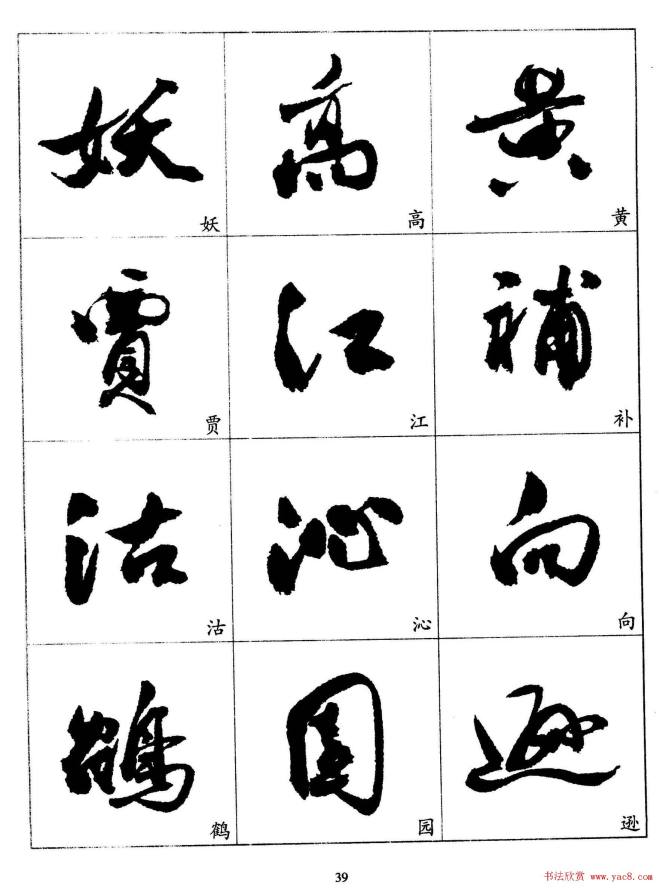 妖 高 黄
妖 高 黄
賈 江 補
贾 江 补
沽 沁 向
沽 沁 向
鶴 園 遜
鹤 园 逊
39
书法欣赏 www.yac8.com